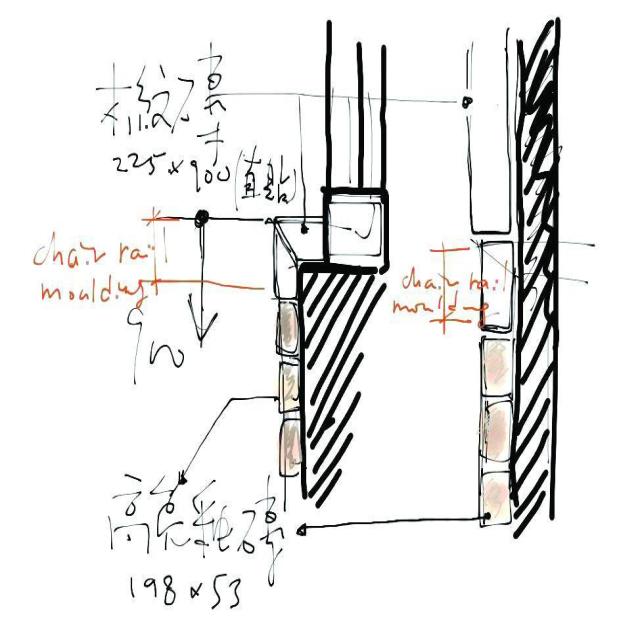 木紋磚
225×900(直貼)
chair rail
moulding
chair rail
moulding
900
高亮釉磚
198×53